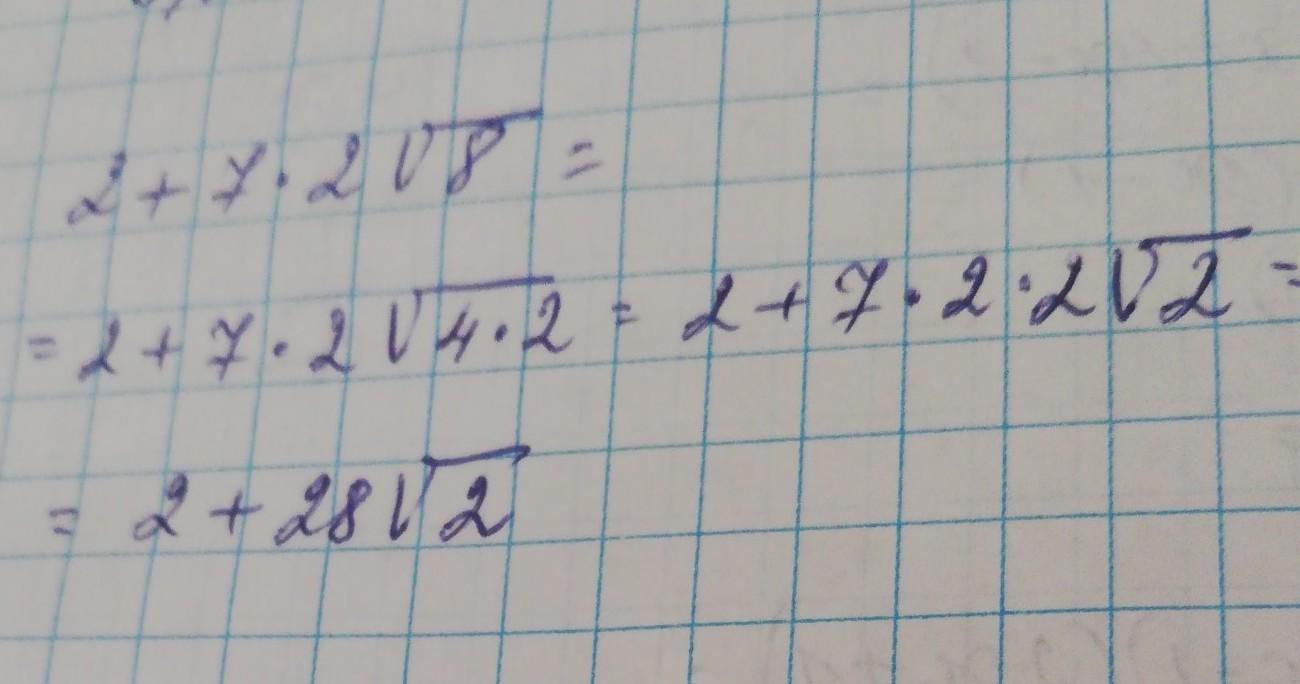 2 + 7 · 2√8 =
= 2 + 7 · 2√4·2 = 2 + 7 · 2 · 2√2 =
= 2 + 28√2